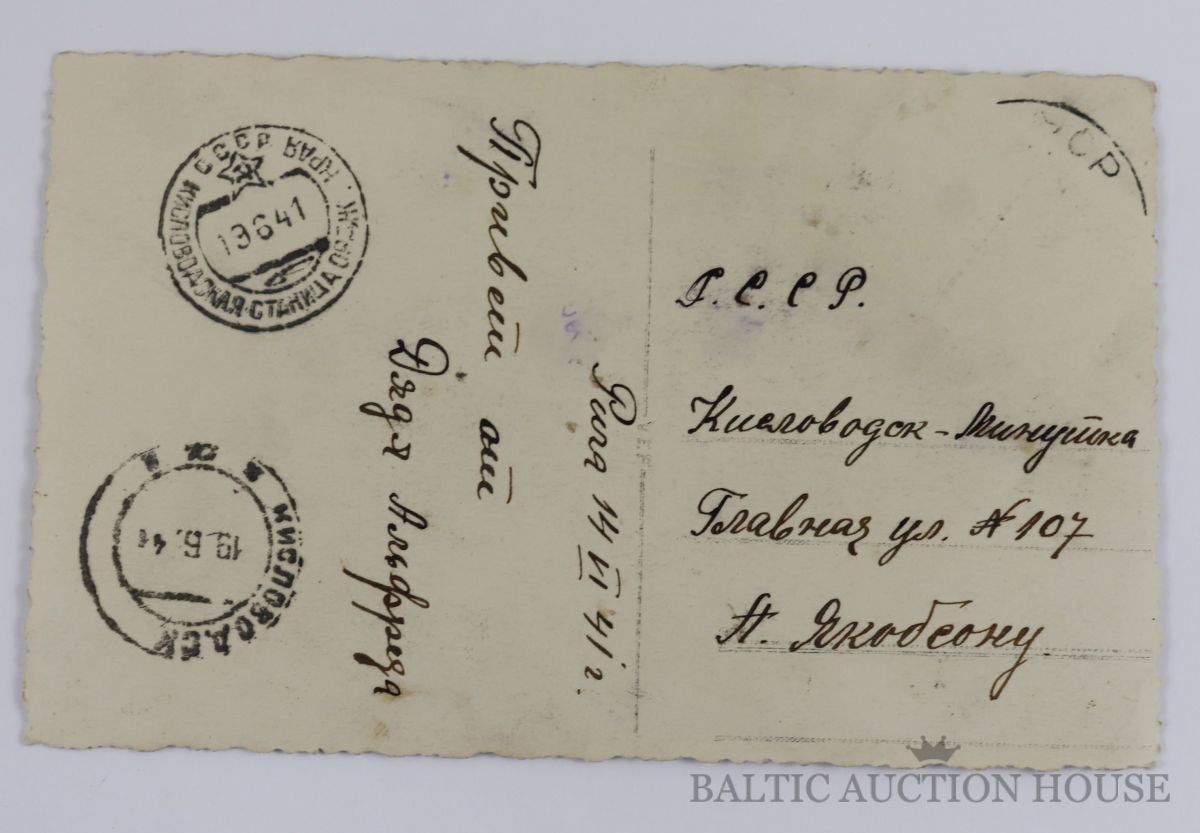 Рига 14 VI 41 г.
Привет от
Дяди Альфреда
С. С. С. Р.
Кисловодск-Минутка
Главная ул. № 107
А. Якобсону
СССР
КИСЛОВОДСКАЯ-СТАНИЦА ОРДЖ. КРАЯ
19 6 41
КИСЛОВОДСК
19.6.41
ССР
BALTIC AUCTION HOUSE